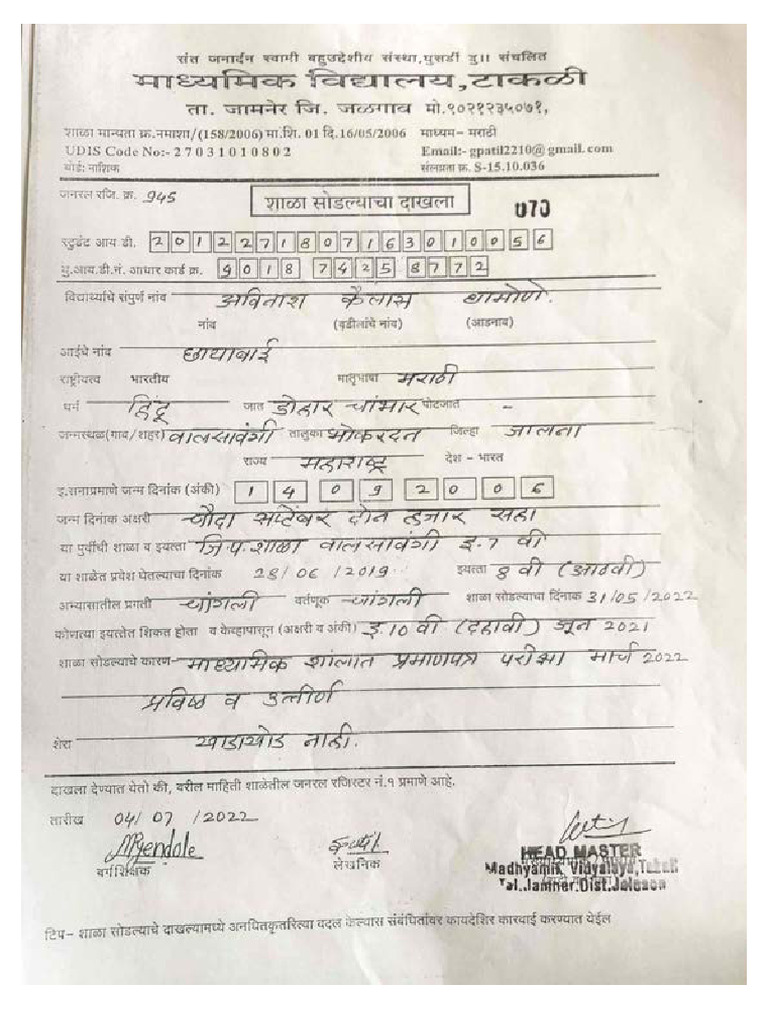 संत जनार्दन स्वामी बहुउद्देशीय संस्था,पुसर्डी बु॥ संचलित
माध्यमिक विद्यालय,टाकळी
ता. जामनेर जि. जळगाव मो.९०२१२३५०७१,
शाळा मान्यता क्र.नमाशा/(158/2006) मा.शि. 01 दि.16/05/2006 माध्यम- मराठी
UDIS Code No:- 27031010802 Email:- gpatil2210@gmail.com
बोर्ड: नाशिक संलग्नता क्र. S-15.10.036
जनरल रजि. क्र. 945
शाळा सोडल्याचा दाखला 070
स्टुडंट आय डी. 2012271807163010056
यु.आय.डी.नं. आधार कार्ड क्र. 9018 7425 8772
विद्यार्थ्याचे संपुर्ण नांव अविनाश कैलास धामोणे.
नांव (वडीलांचे नांव) (आडनाव)
आईचे नांव छायाबाई
राष्ट्रीयत्व भारतीय मातृभाषा मराठी
धर्म हिंदू जात ढोहार चांभार पोटजात -
जन्मस्थळ(गाव/शहर) वालसावंगी तालुका भोकरदन जिल्हा जालना
राज्य महाराष्ट्र देश - भारत
इ.सनाप्रमाणे जन्म दिनांक (अंकी) 14 09 2006
जन्म दिनांक अक्षरी चौदा सप्टेंबर दोन हजार सहा
या पुर्वीची शाळा व इयत्ता जि.प.शाळा वालसावंगी इ.7 वी
या शाळेत प्रवेश घेतल्याचा दिनांक 28/06/2019 इयत्ता 8 वी (आठवी)
अभ्यासातील प्रगती चांगली वर्तणूक चांगली शाळा सोडल्याचा दिनांक 31/05/2022
कोणत्या इयत्तेत शिकत होता व केव्हापासून (अक्षरी व अंकी) इ.10 वी (दहावी) जून 2021
शाळा सोडल्याचे कारण- माध्यामिक शालांत प्रमाणपत्र परीक्षा मार्च 2022
प्रविष्ठ व उत्तीर्ण
शेरा खाडाखोड नाही.
दाखला देण्यात येतो की, वरील माहिती शाळेतील जनरल रजिस्टर नं.१ प्रमाणे आहे.
तारीख 04/07/2022
वर्गशिक्षक लेखनिक HEAD MASTER
Madhyamik Vidyalaya,Takali
Tal.Jamner.Dist.Jalgaon
टिप- शाळा सोडल्याचे दाखल्यामध्ये अनधिकृतरित्या बदल केल्यास संबंधितांवर कायदेशिर कारवाई करण्यात येईल